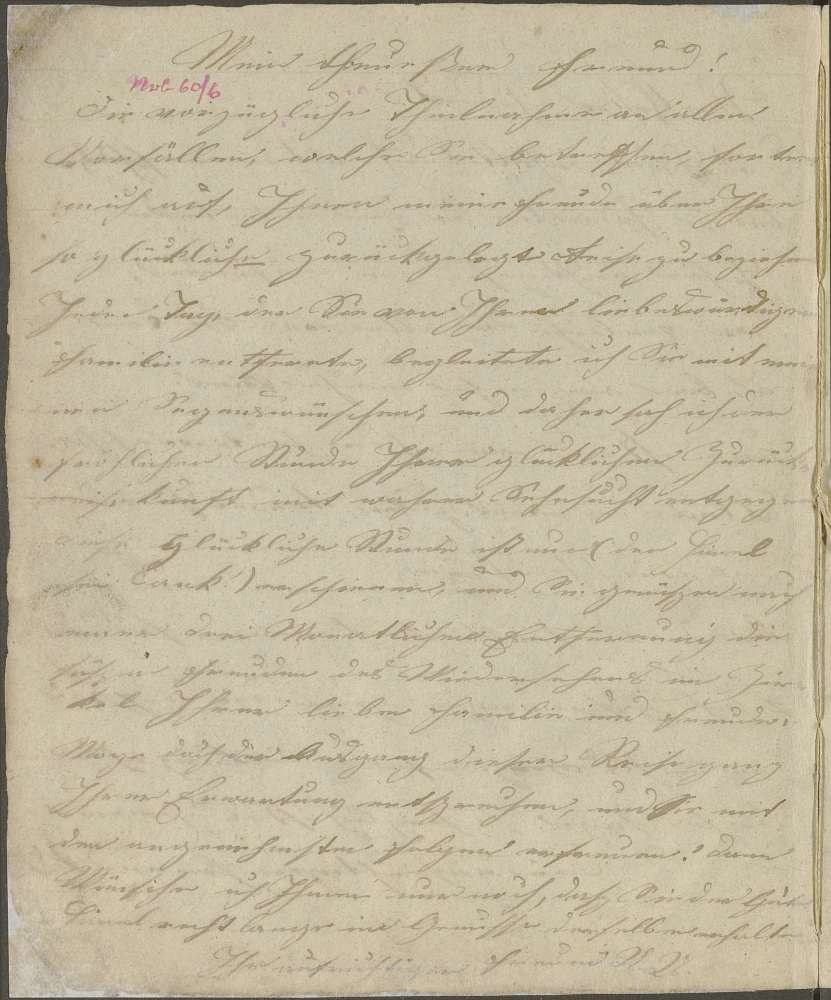 Mein theurester Freund!
NoC 60/6
Die vorzügliche Theilnahme an allen
Vorfällen, welche Sie betreffen, forter
mich auf, Ihnen meine Freude über Ihre
so glückliche zurückgelegte Reise zu
Jeden Tag, der Sie von Ihrer liebenswürdigen
Familie entfernte, begleitete ich Sie mit mei
nen Segenswünschen, und daher sah ich der
fröhlichen Stunde Ihrer glücklichen Zurück
kunft mit wahrer Sehnsucht entgegen
Diese glückliche Stunde ist nun (der Himel
sei Dank!) erschienen, und Sie genüßen nach
einer drei Monatlichen Entfernung die
süßen Freuden des Wiedersehens im Zir
kel Ihrer lieben Familie und Freunde.
Möge doch der Ausgang dieser Reise ganz
Ihrer Erwartung entsprechen, und Sie mit
den angenehmsten Folgen erfreuen! dann
Wünsche ich Ihnen nur noch, daß Sie der Güte
Himel recht lange im Genusse derselben erhalte
Ihr aufrichtiger Freund N. N.